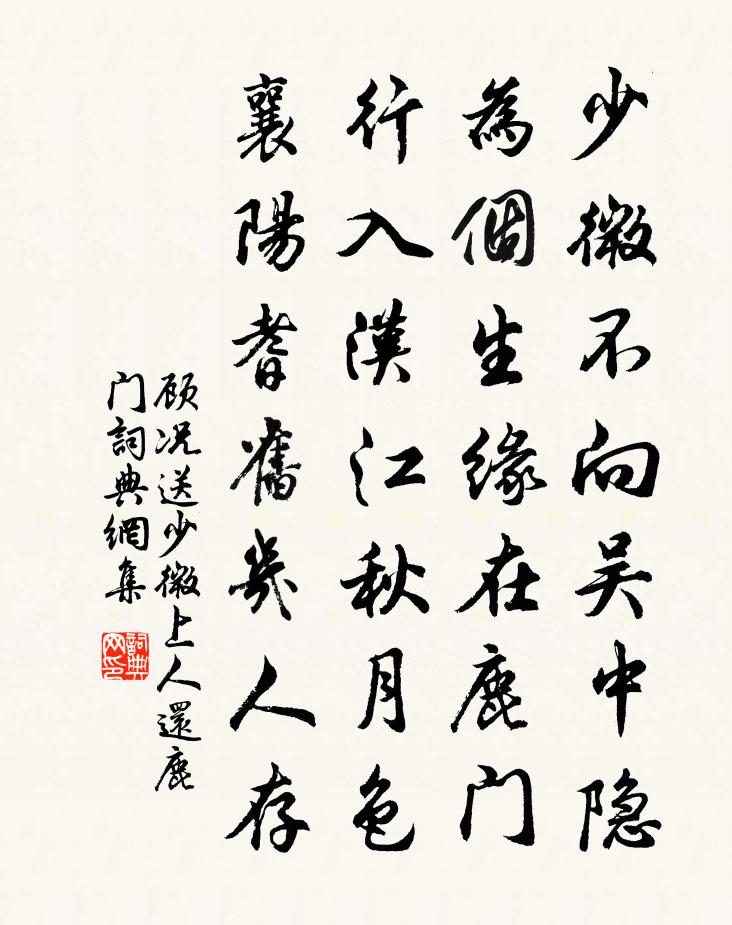 少微不向吴中隐
為個生緣在鹿门
行入漢江秋月色
襄陽耆舊幾人存
顾况送少微上人還鹿
门詞典網集
詞典网印